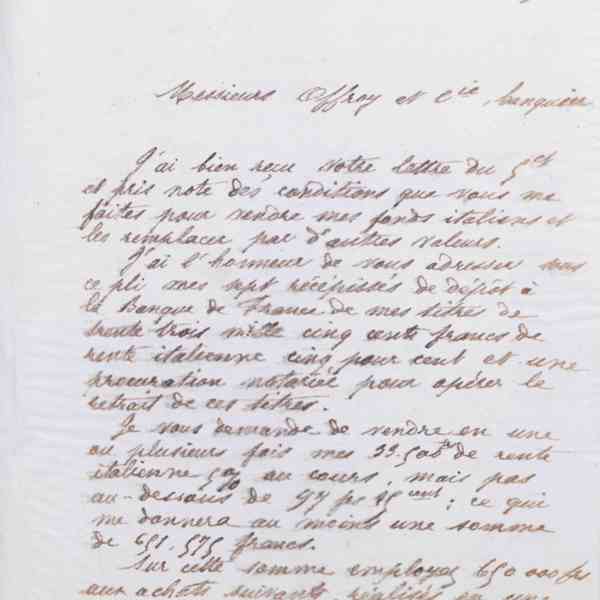 Messieurs Offroy et Cie, banquiers
J'ai bien reçu votre lettre du 5 ct
et pris note des conditions que vous me
faites pour vendre mes fonds italiens et
les remplacer par d'autres valeurs.
J'ai l'honneur de vous adresser sous
ce pli mes sept récépissés de dépôt à
la Banque de France de mes titres de
trente trois mille cinq cents francs de
rente italienne cinq pour cent et une
procuration notariée pour opérer le
retrait de ces titres.
Je vous demande de vendre en une
ou plusieurs fois mes 33.500 fr de rente
italienne 5% au cours, mais pas
au-dessous de 97 frs 25 cent; ce qui
me donnera au moins une somme
de 651.575 francs.
Sur cette somme employez 650 000 frs
aux achats suivants réalisés en une